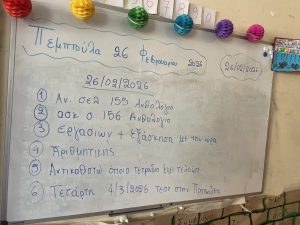 Πεμπτούλα 26 Φεβρουαρίου 2026
(26/02/2026)
26/02/2026
① Αν σελ 155 Ανθολόγιο
② ασκ σ 156 Ανθολόγιο
③ εργασιών + εξάσκηση με την ώρα
④ Αριθμητικής
⑤ Αντικαθιστώ όποιο τετράδιο έχει τελειώσει
⑥ Τετάρτη 4/3/2026 τεστ στην Προπαίδεια